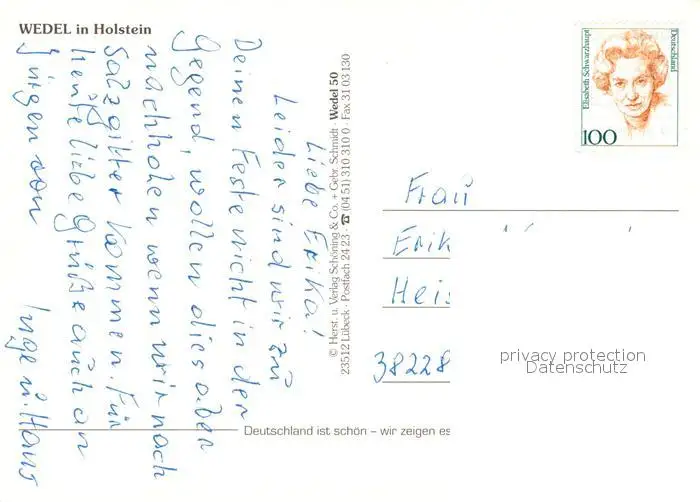 WEDEL in Holstein
Liebe Erika!
Leider sind wir zu
Deinen Feste nicht in der
Gegend, wollen dies aber
nachholen wenn wir nach
Salzgitter kommen. Für
heute liebe Grüße auch an
Jürgen von
Inge u. Hans
© Herst. u. Verlag Schöning & Co. + Gebr. Schmidt · Wedel 50
23512 Lübeck · Postfach 24 23 · ☎ (04 51) 310 310 0 · Fax 31 03 130
Elisabeth Schwarzhaupt
Deutschland
100
Frau
Erik
Heis
38228
privacy protection
Datenschutz
Deutschland ist schön – wir zeigen es